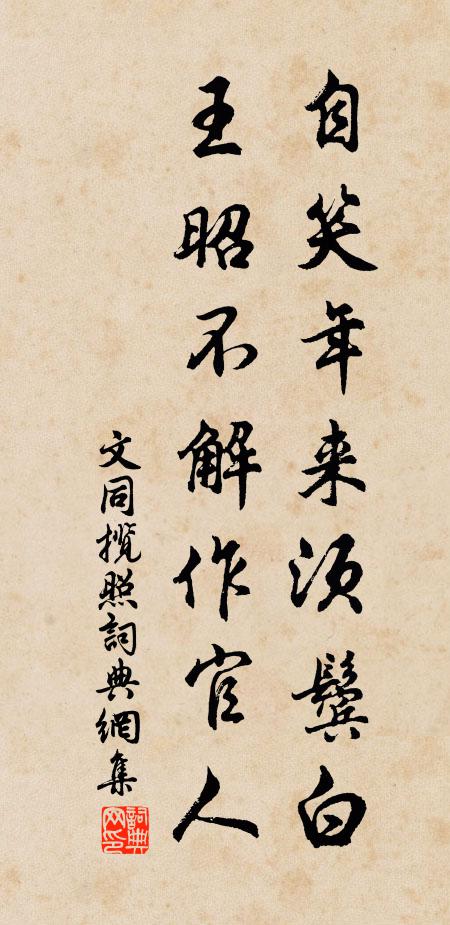 自笑年来须鬓白
王昭不解作官人
文同揽照詞典網集
詞典网印